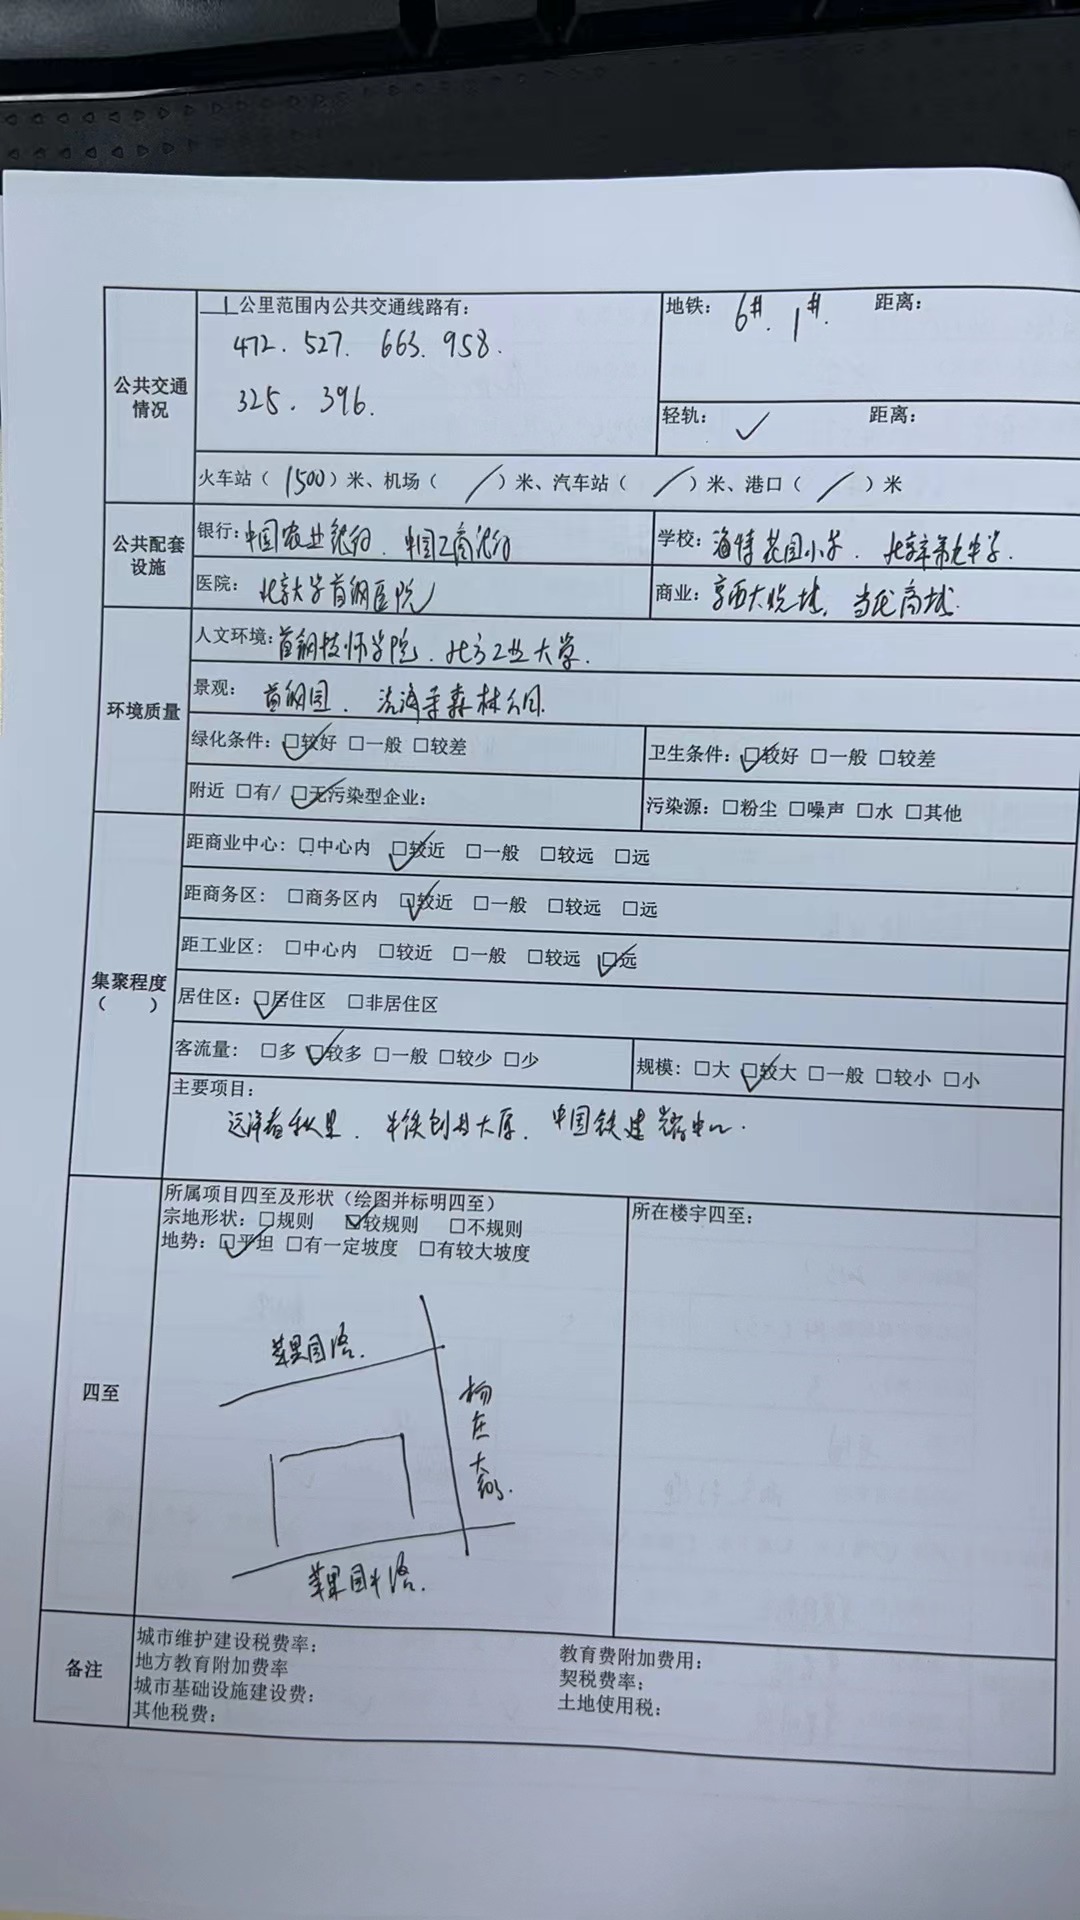 1公里范围内公共交通线路有：
472. 527. 663. 958.
325. 396.
地铁： 6#. 1#. 距离：
公共交通
情况
轻轨： ✓ 距离：
火车站（ 1500）米、机场（ / ）米、汽车站（ / ）米、港口（ / ）米
公共配套
设施
银行：中国农业银行. 中国工商银行
学校：海特花园小学. 北京市第九中学.
医院： 北京大学首钢医院
商业：京西大悦城, 当代商城.
环境质量
人文环境：首钢技师学院. 北方工业大学.
景观： 首钢园. 法海寺森林公园.
绿化条件：☑较好 □一般 □较差
卫生条件：☑较好 □一般 □较差
附近 □有/ ☑无污染型企业：
污染源：□粉尘 □噪声 □水 □其他
集聚程度
（ ）
距商业中心：□中心内 ☑较近 □一般 □较远 □远
距商务区： □商务区内 ☑较近 □一般 □较远 □远
距工业区： □中心内 □较近 □一般 □较远 ☑远
居住区：☑居住区 □非居住区
客流量： □多 ☑较多 □一般 □较少 □少
规模：□大 ☑较大 □一般 □较小 □小
主要项目：
远洋春秋里. 中铁创业大厦. 中国铁建
四至
所属项目四至及形状（绘图并标明四至）
宗地形状：□规则 ☑较规则 □不规则
地势：☑平坦 □有一定坡度 □有较大坡度
所在楼宇四至：
苹果园路.
杨庄大街.
苹果园中路.
备注
城市维护建设税费率；
地方教育附加费率
城市基础设施建设费：
其他税费：
教育费附加费用：
契税费率；
土地使用税：